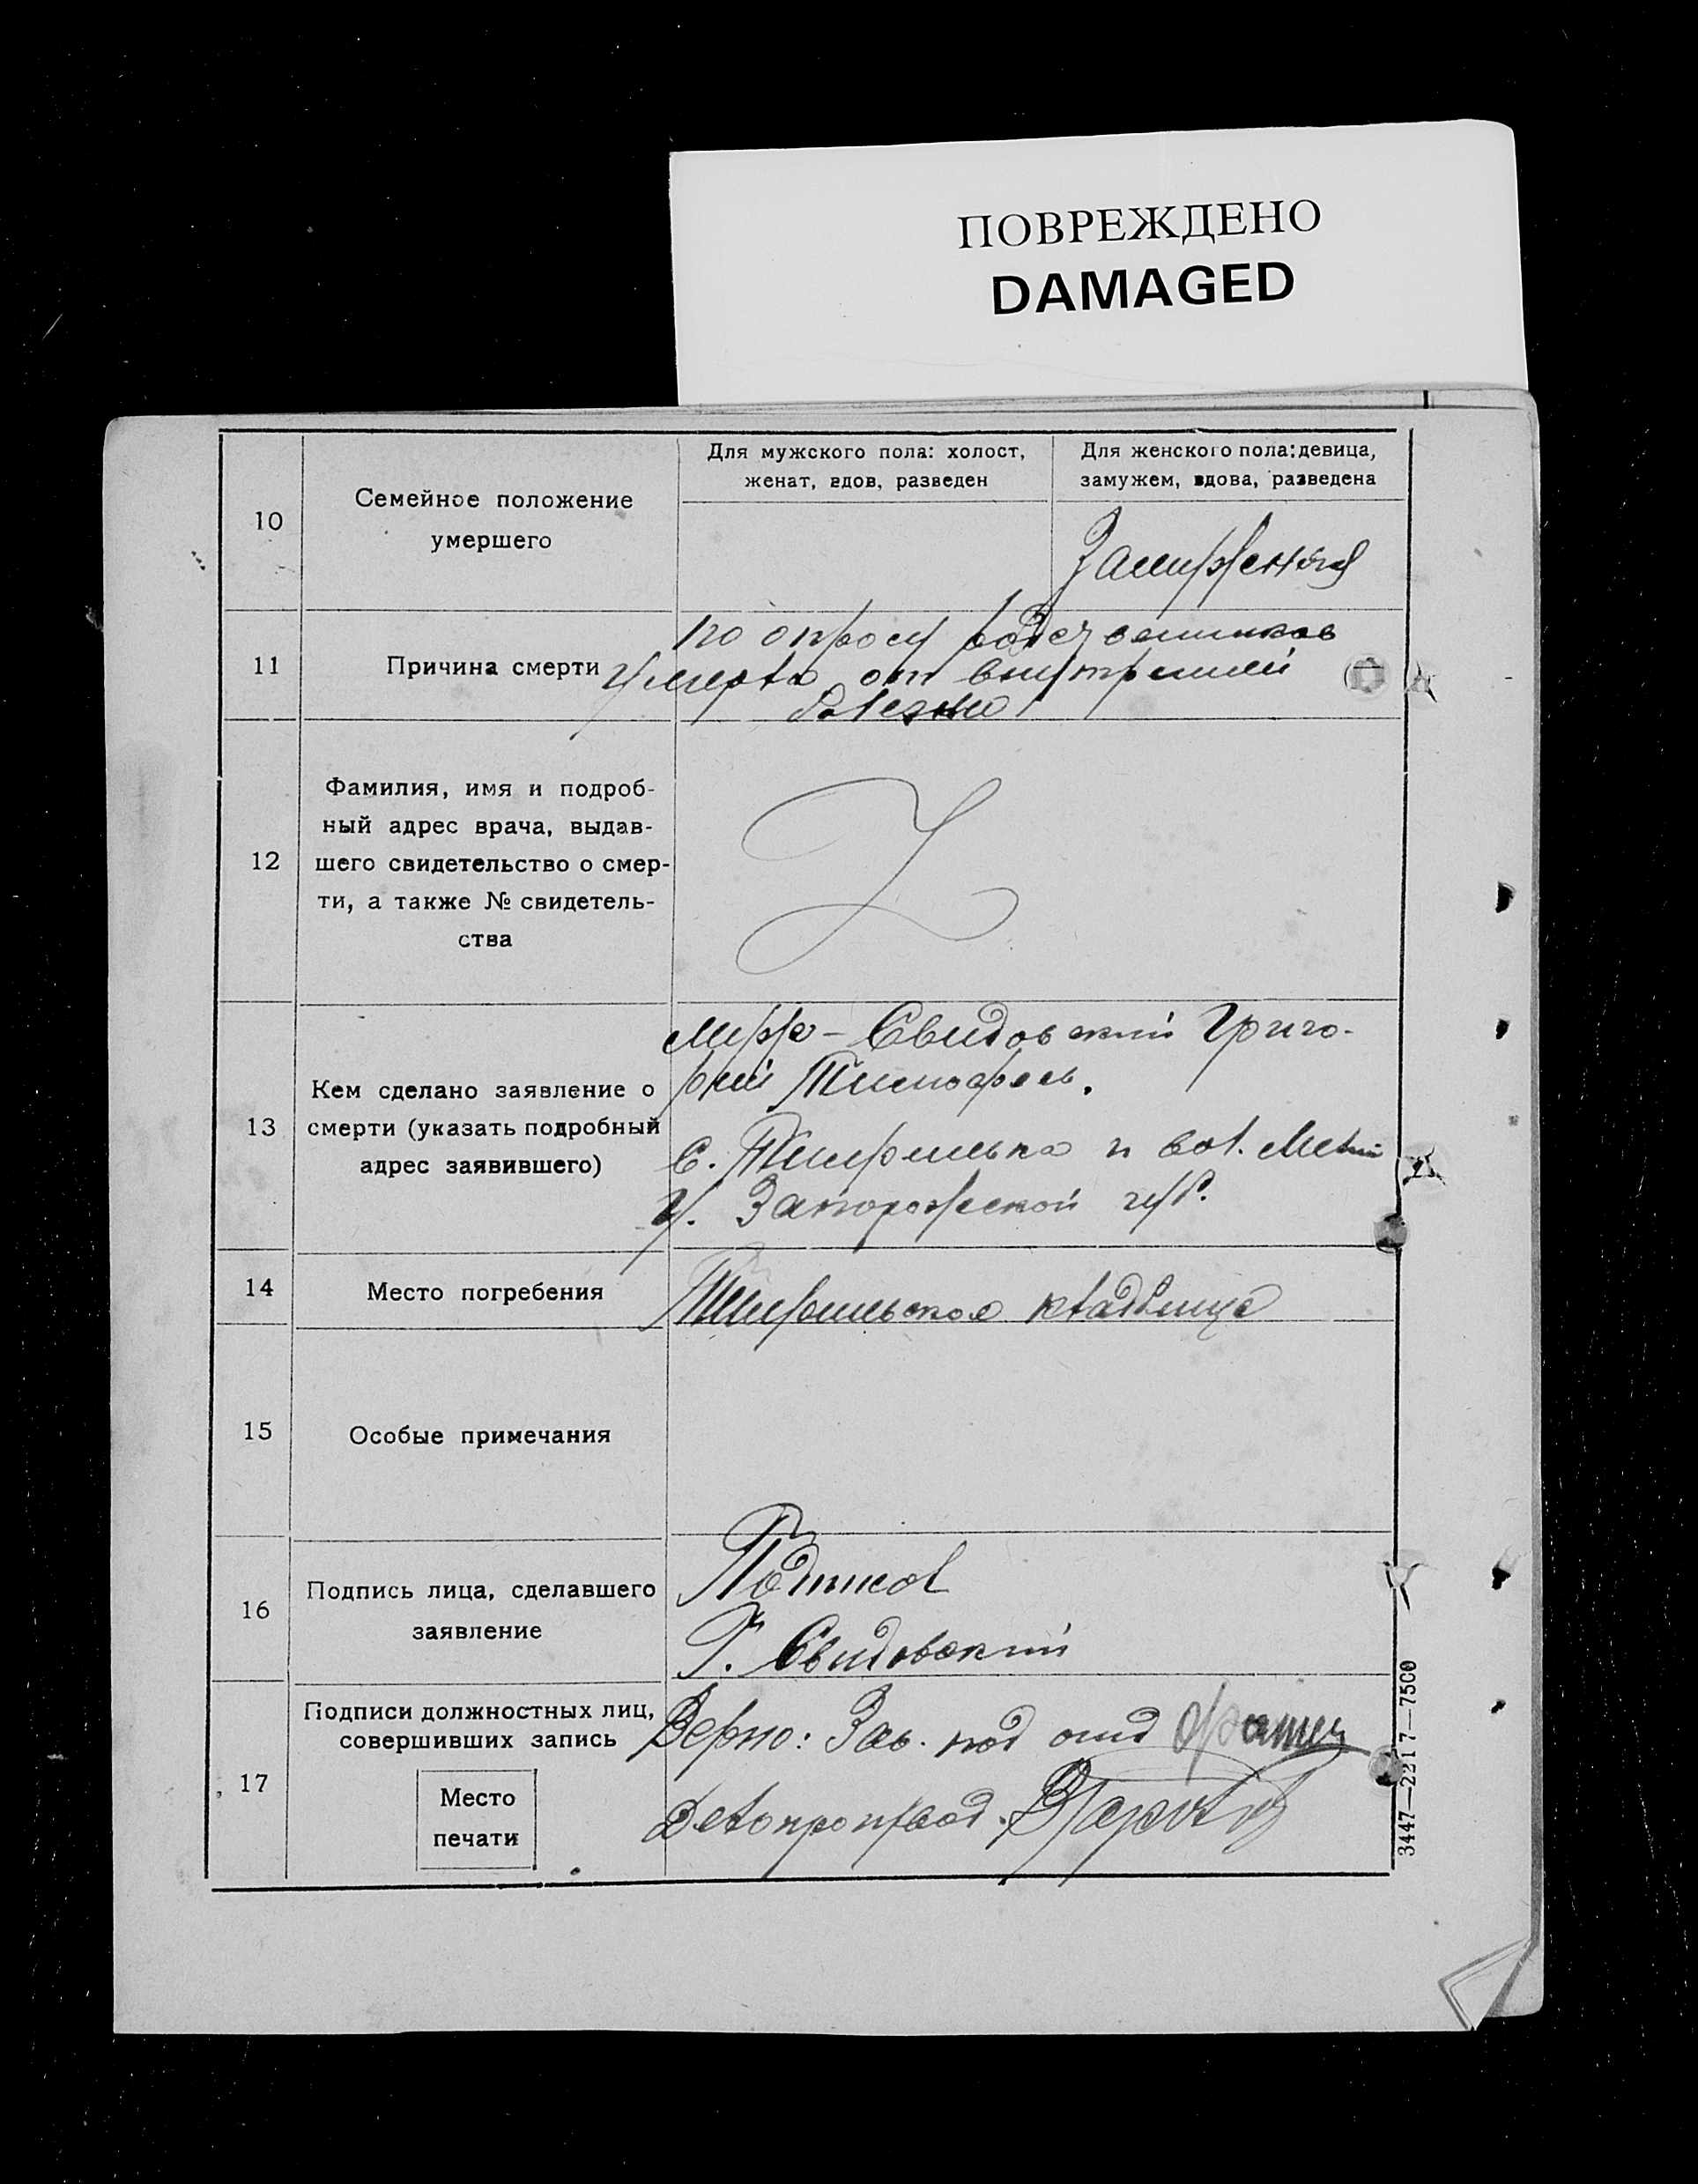 ПОВРЕЖДЕНО
DAMAGED
10
Семейное положение
умершего
Для мужского пола: холост,
женат, вдов, разведен
Для женского пола: девица,
замужем, вдова, разведена
Замужняя
11
Причина смерти
по опросу родственников
умерла от внутренней
болезни
12
Фамилия, имя и подроб-
ный адрес врача, выдав-
шего свидетельство о смер-
ти, а также № свидетель-
ства
13
Кем сделано заявление о
смерти (указать подробный
адрес заявившего)
муж - Свидовский Григо-
рий Тимофеев.
с. и вол.
у. Запорожской губ.
14
Место погребения
кладбище
15
Особые примечания
16
Подпись лица, сделавшего
заявление
Подписал
Г. Свидовский
17
Подписи должностных лиц,
совершивших запись
Место
печати
Верно: Зав. под отд
Делопроизвод.
3447—2217—7500